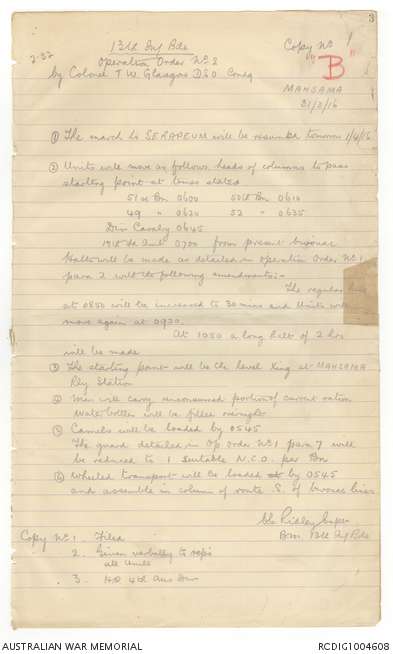 3
13th Inf Bde
Copy No 1
2.32
Operation Order No 2
"B"
by Colonel T W Glasgow DSO Comdg
MAHSAMA
31/3/16
① The march to SERAPEUM will be resumed tomorrow 1/4/16
② Units will move as follows heads of columns to pass
starting point at times stated
51st Bn 0600 50th Bn 0610
49 " 0620 52 " 0635
Div Cavalry 0645
Fd Amb 0700 from present bivouac
Halts will be made as detailed in operation Order No 1
para 2 with the following amendments:-
The regular
at 0850 will be increased to 30 mins and Units will
move again at 0920.
At 1050 a long halt of 2 hrs
will be made
③ The starting point will be the level Xing at MAHSAMA
Rly Station
④ Men will carry unconsumed portion of current ration
Water bottles will be filled overnight
⑤ Camels will be loaded by 0545
The guard detailed in Op Order No 1 para 7 will
be reduced to 1 suitable N.C.O. per Bn
⑥ Wheeled transport will be loaded at by 0545
and assemble in column of route S. of bivouac lines
Ridley
Bm 13th Inf Bde
Copy No 1. Filed
2. Given verbally to reps
all Units
3. HQ 4th Aus Div
AUSTRALIAN WAR MEMORIAL
RCDIG1004608